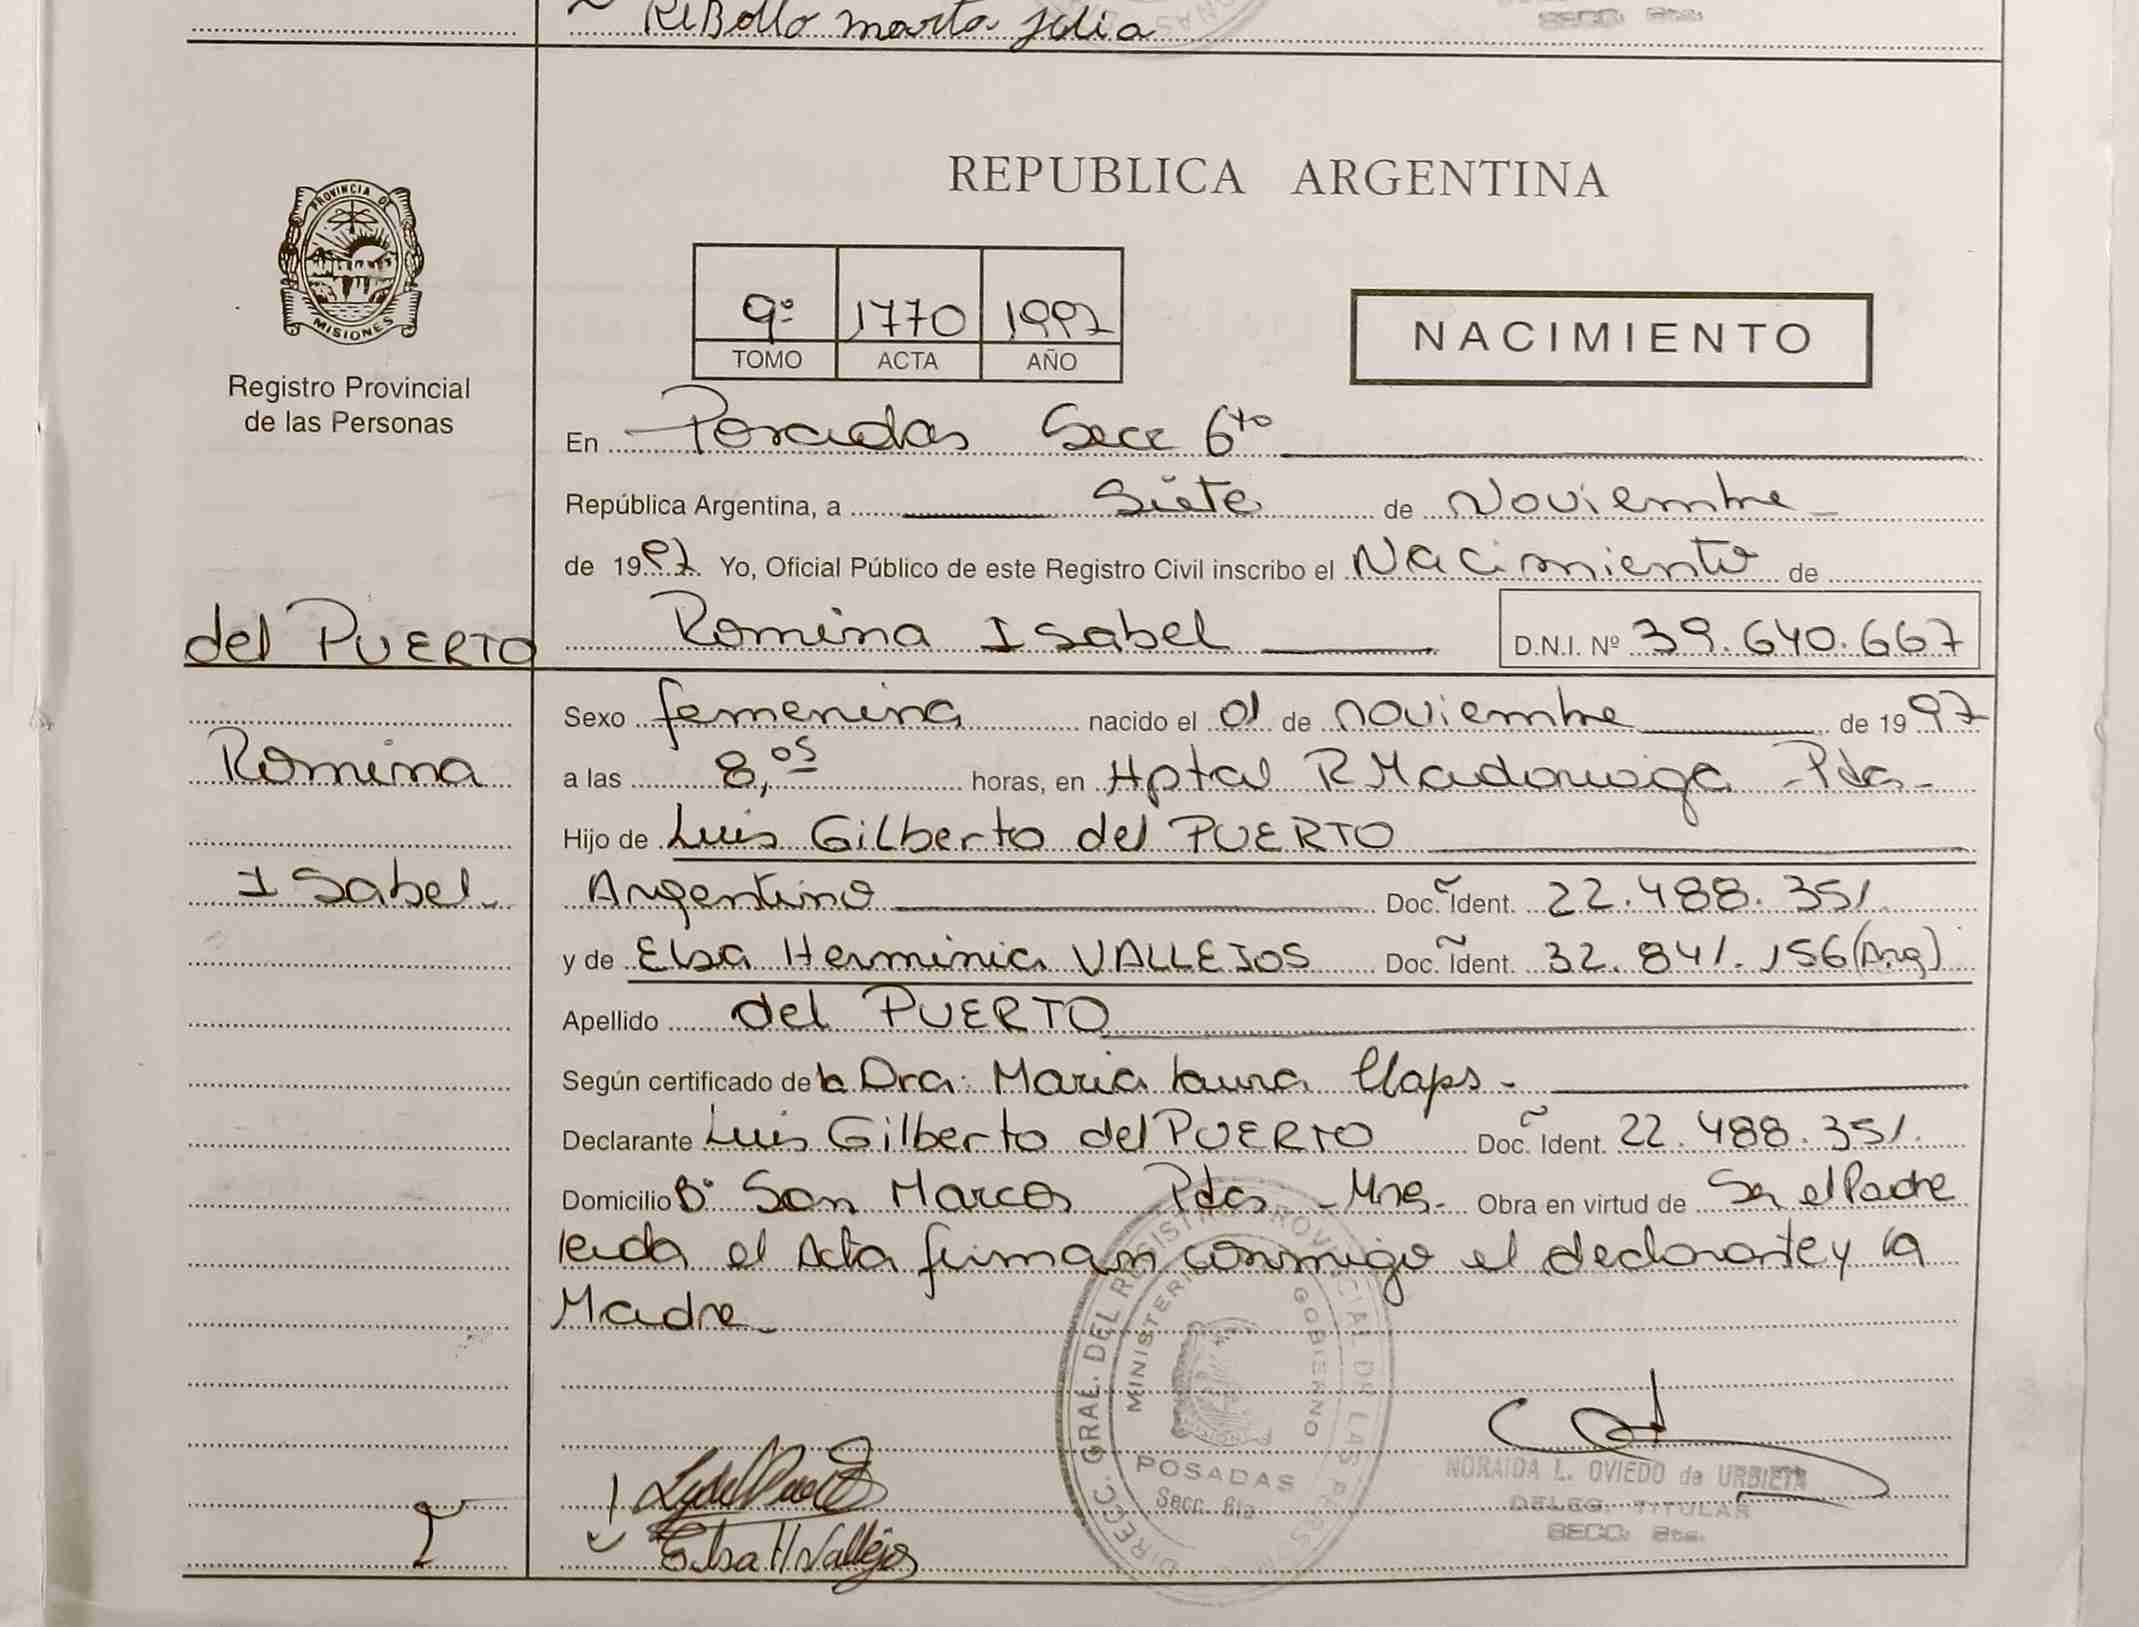 Ribollo marta julia
SECC. 6ta.
PROVINCIA DE
MISIONES
Registro Provincial
de las Personas
REPUBLICA ARGENTINA
9º 1770 1997
TOMO ACTA AÑO
NACIMIENTO
En Posadas Secc 6ta
República Argentina, a Siete de Noviembre
de 1997 Yo, Oficial Público de este Registro Civil inscribo el Nacimiento de
del PUERTO Romina Isabel D.N.I. Nº 39.640.667
Sexo femenina nacido el 01 de noviembre de 1997
Romina
a las 8,05 horas, en Hptal R Madariaga - Pdas -
Hijo de Luis Gilberto del PUERTO
Isabel.
Argentino Doc. Ident. 22.488.351
y de Elsa Herminia VALLEJOS Doc. Ident. 32.841.156 (Arg)
Apellido del PUERTO
Según certificado de la Dra: Maria Laura Claps -
Declarante Luis Gilberto del PUERTO Doc. Ident. 22.488.351.
Domicilio Bº San Marcos Pdas - Mns. Obra en virtud de Ser el Padre
leida el Acta firman conmigo el declarante y la
Madre
DIRECC. GRAL. DEL REGISTRO PROVINCIAL DE LAS PERSONAS
MINISTERIO GOBIERNO
POSADAS
Secc. 6ta
Elsa H Vallejos
NORAIDA L. OVIEDO de URBIETA
DELEG. TITULAR
SECC. 6ta.